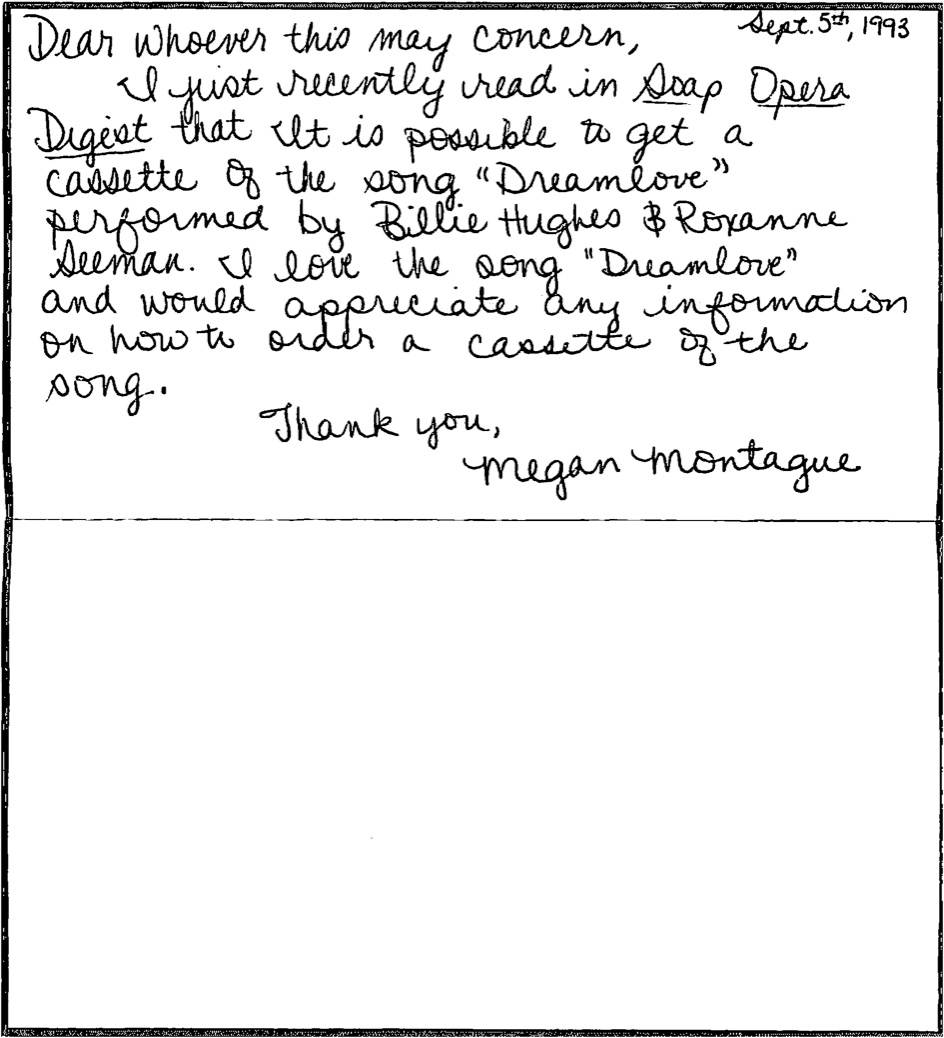 Sept. 5th, 1993
Dear Whoever this may concern,
I just recently read in Soap Opera
Digest that It is possible to get a
cassette of the song "Dreamlove"
performed by Billie Hughes & Roxanne
Seeman. I love the song "Dreamlove"
and would appreciate any information
on how to order a cassette of the
song.
Thank you,
Megan Montague